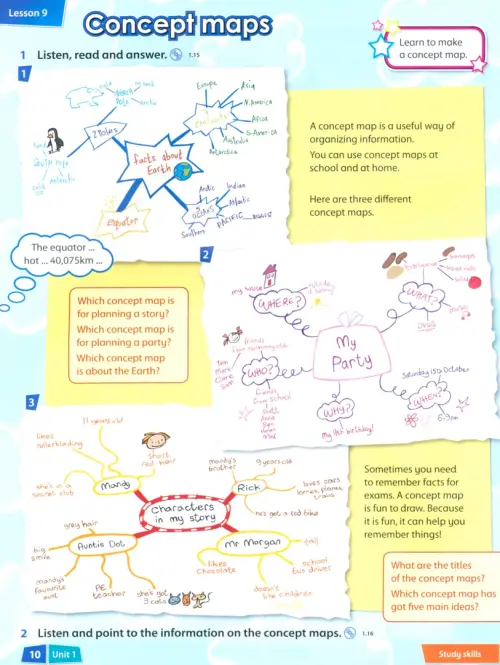 Lesson 9
Concept maps
1 Listen, read and answer. 1.15
Learn to make
a concept map.
1
facts about
Earth
2 Poles
NORTH
Pole
arctic
South Pole
Antarctic
Europe
Asia
N.America
Africa
S.America
Australia
Antarctica
Arctic
Indian
Atlantic
OCEANS
PACIFIC
Southern
equator
A concept map is a useful way of
organizing information.
You can use concept maps at
school and at home.
Here are three different
concept maps.
The equator ...
hot ... 40,075km ...
Which concept map is
for planning a story?
Which concept map is
for planning a party?
Which concept map
is about the Earth?
2
My
Party
my house
WHERE?
WHAT?
Barbecue
sausages
salad
music
WHO?
friends
Tom
Mark
Clare
Sam
friends
from school
WHY?
my 9th birthday!
Saturday 15th October
WHEN?
3
Characters
in my story
Mandy
11 years old
likes
rollerblading
short,
red hair
she's in a
secret club
Rick
mandy's
brother
9 years old
loves cars
lorries, planes,
trains
he's got a red bike
Auntis Dot
gray hair
big
smile
mandy's
favourite
aunt
PE
teacher
she's got
3 cats
Mr Morgan
tall
school
bus driver
likes
chocolate
doesn't
like children
Sometimes you need
to remember facts for
exams. A concept map
is fun to draw. Because
it is fun, it can help you
remember things!
What are the titles
of the concept maps?
Which concept map has
got five main ideas?
2 Listen and point to the information on the concept maps. 1.16
10 Unit 1
Study skills